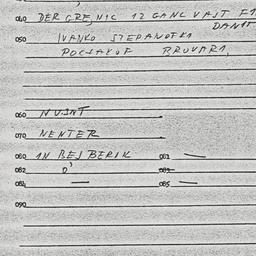 040 DER GREJNIC 12 GANC VAST F1
DAN15
050 IVANKO STEPANOFKA
POCLAKOF BRUVAR1,
060 NUSNT
070 NENTER
080 1N BEJBERIK 081 —
082 0' 083
084 — 085 —
090